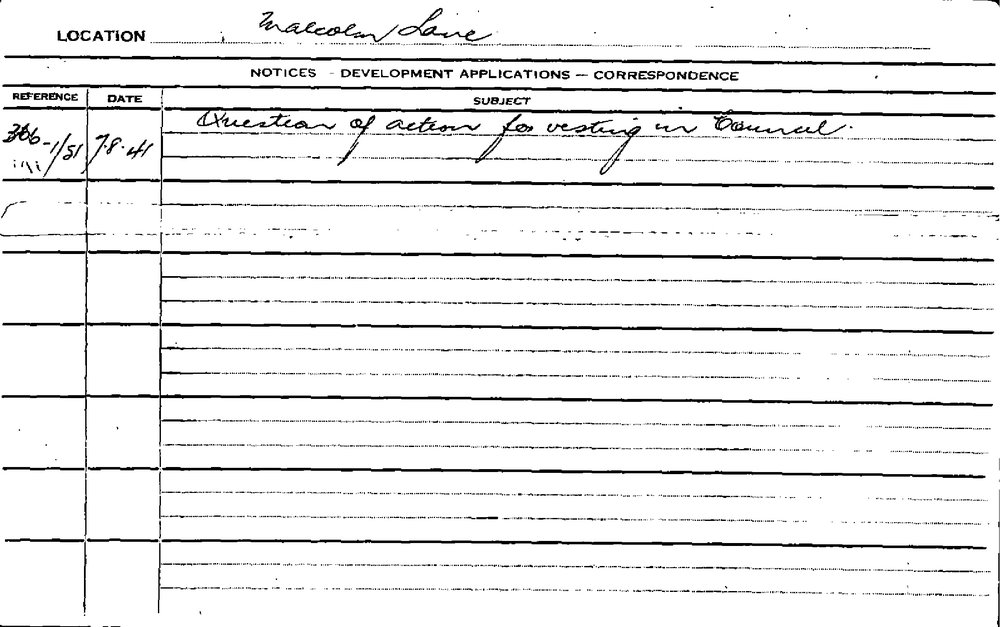 LOCATION Malcolm Lane
NOTICES - DEVELOPMENT APPLICATIONS — CORRESPONDENCE
REFERENCE DATE SUBJECT
Question of action for vesting in Council.
-1/51 7.8.41